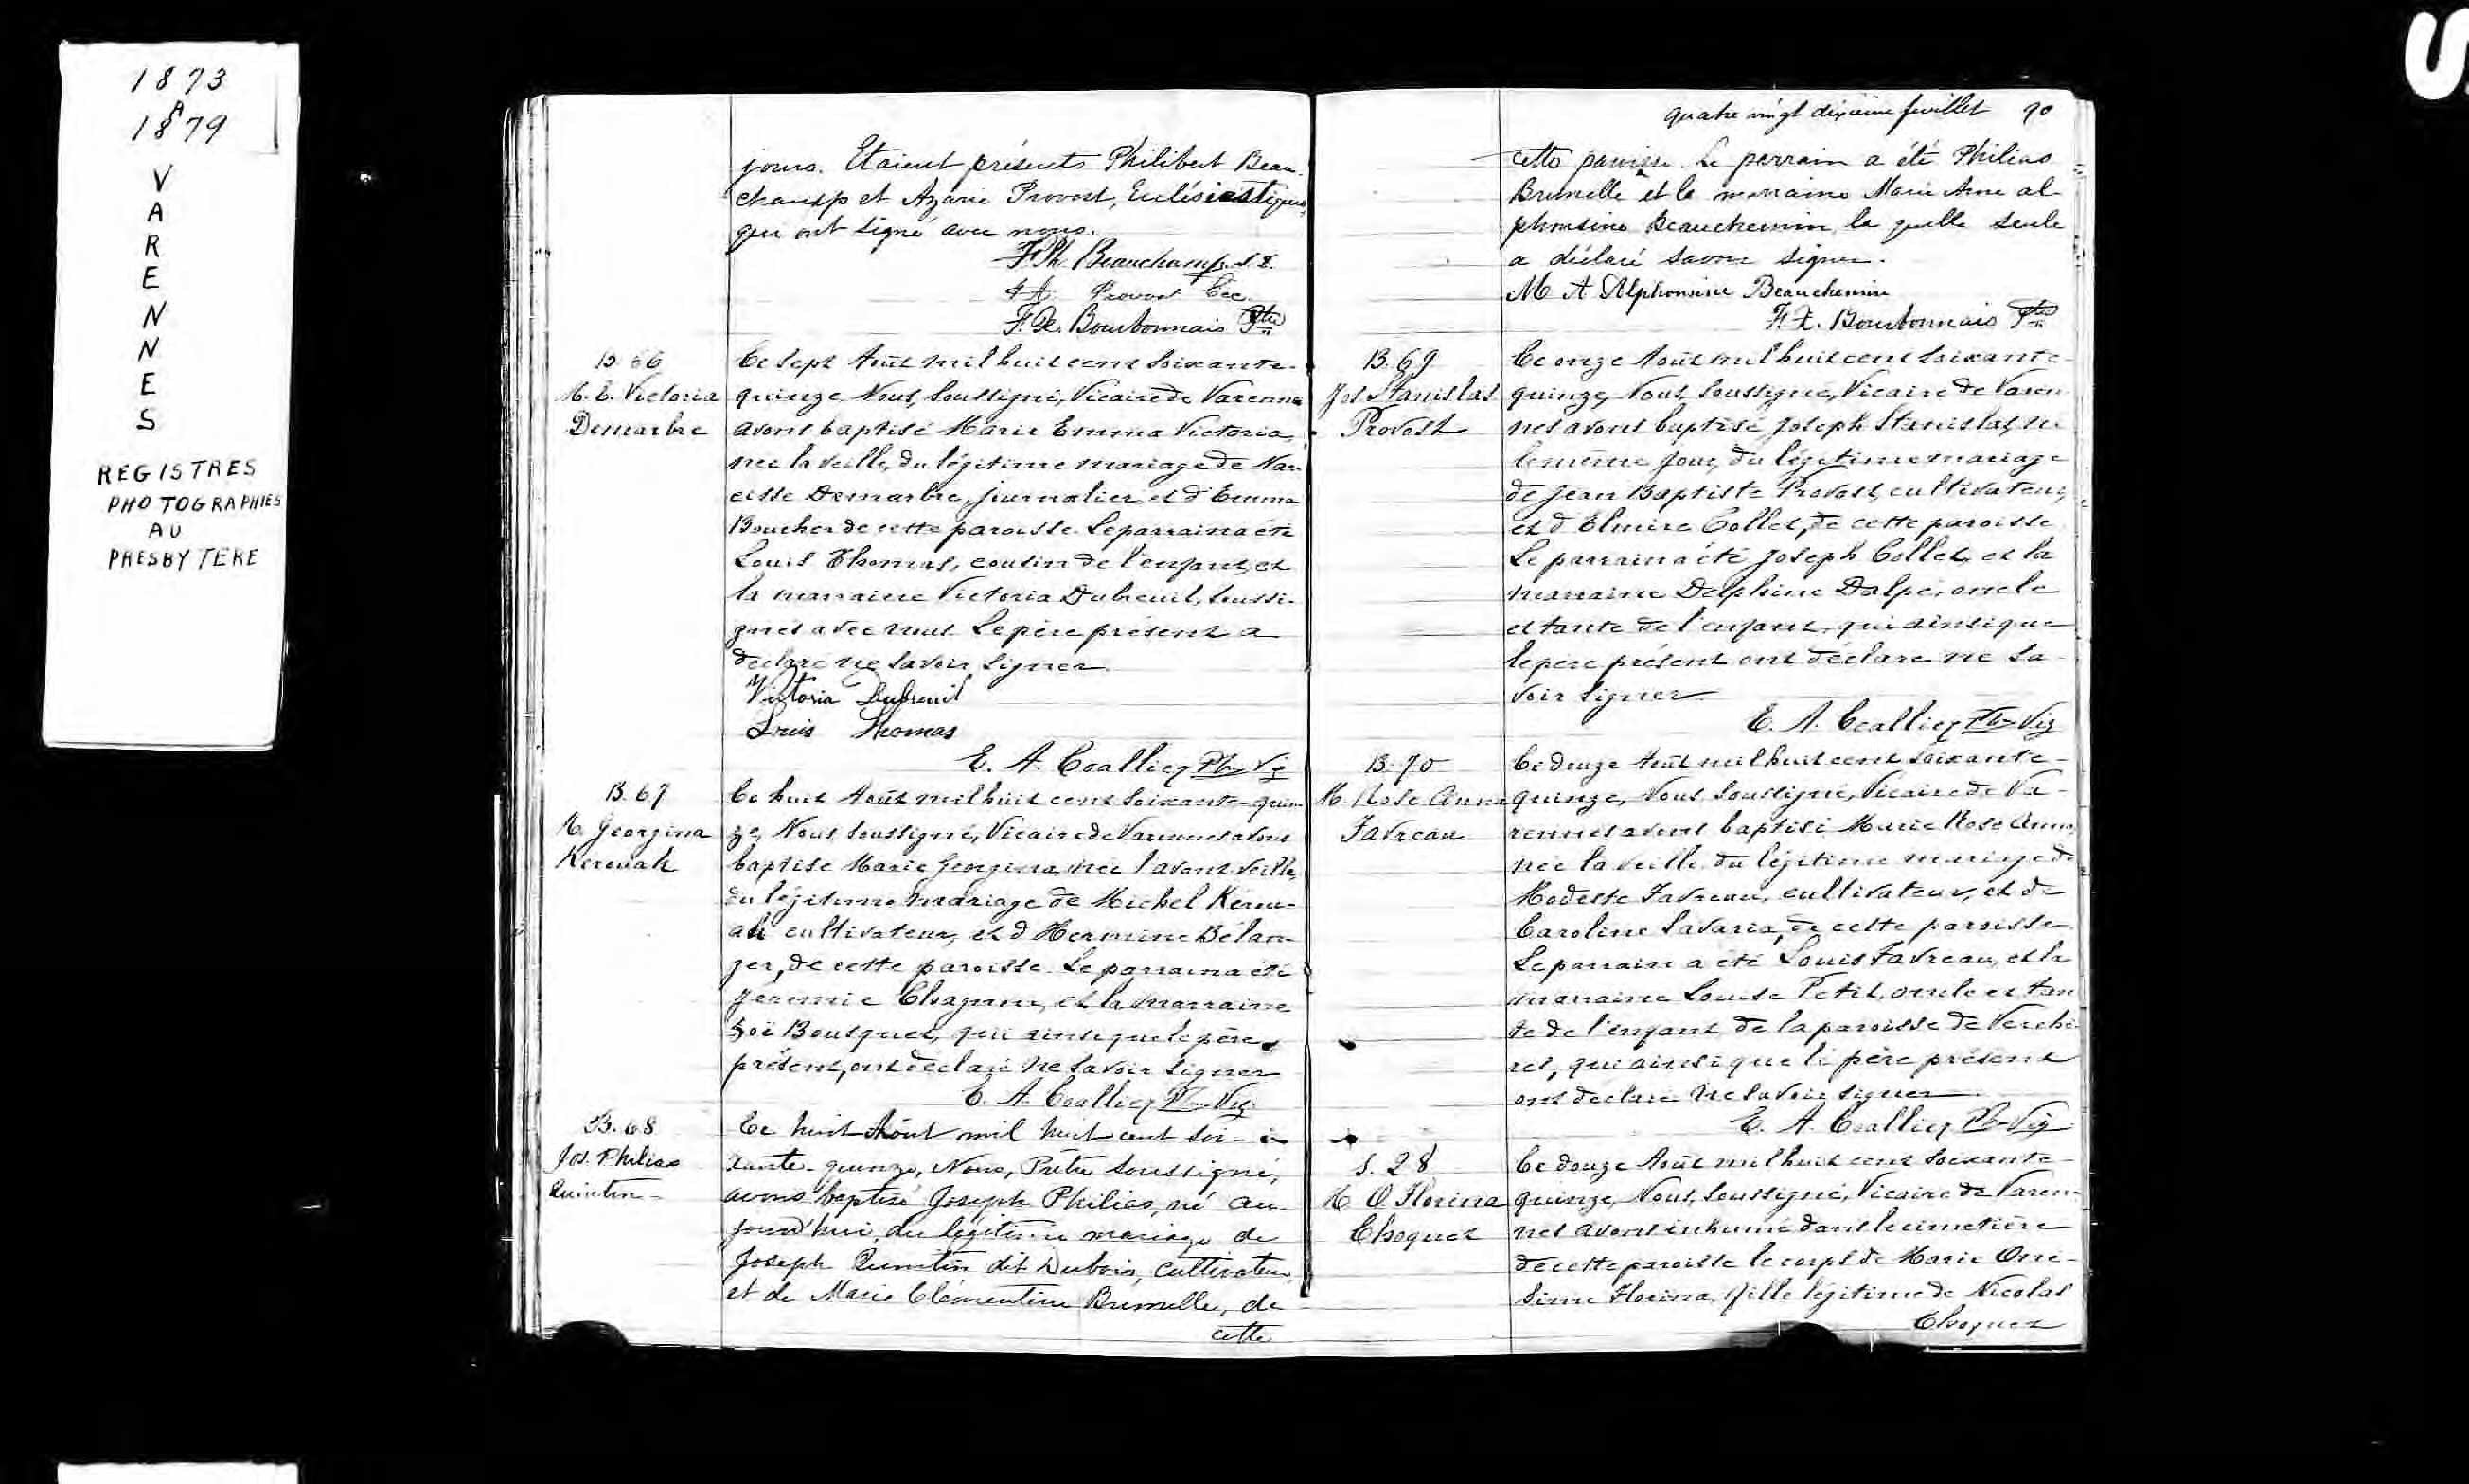 1873
A
1879
V
A
R
E
N
N
E
S
REGISTRES
PHOTOGRAPHIES
AU
PRESBYTERE
jours. Etaient présents Philibert Beau-
champ et Azarie Provost, Ecclésiastiques,
qui ont signé avec nous.
F. Ph. Beauchamp
Provost Ecc.
F. X. Bourbonnais Ptre
B. 66
M. E. Victoria
Demarbre
Ce sept Août mil huit cent soixante-
quinze Nous, Soussigné, Vicaire de Varennes
avons baptisé Marie Emma Victoria,
née la veille, du légitime mariage de Nar-
cisse Demarbre, journalier, et d'Emma
Boucher de cette paroisse. Le parrain a été
Louis Thomas, cousin de l'enfant, et
la marraine Victoria Dubreuil, soussi-
gnés avec nous. Le père présent a
déclaré ne savoir signer.
Victoria Dubreuil
Louis Thomas
E. A. Coallier Ptre Vic
B. 67
M. Georgina
Kerouak
Ce huit Août mil huit cent soixante-quin-
ze, Nous, soussigné, Vicaire de Varennes avons
baptisé Marie Georgina, née l'avant veille,
du légitime mariage de Michel Kérou-
ak cultivateur, et d'Hermine Bélan-
ger, de cette paroisse. Le parrain a été
Jérémie Chagnon, et la marraine
Zoë Bousquet, qui ainsi que le père
présent, ont déclaré ne savoir signer
E. A. Coallier Ptre Vic
B. 68
Jos. Philias
Quintin
Ce huit Août mil huit cent soi-
xante-quinze, Nous, Prêtre soussigné,
avons baptisé Joseph Philias, né au-
jourd'hui, du légitime mariage de
Joseph Quintin dit Dubois, cultivateur,
et de Marie Clémentine Brunelle, de
cette
quatre vingt dixième feuillet 90
cette paroisse. Le parrain a été Philias
Brunelle et la marraine Marie Anne Al-
phonsine Beauchemin, la quelle seule
a déclaré savoir signer.
M A Alphonsine Beauchemin
F. X. Bourbonnais Ptre
B. 69
Jos Stanislas
Provost
Ce onze Août mil huit cent soixante-
quinze, Nous, Soussigné, Vicaire de Varen-
nes avons baptisé Joseph Stanislas, né
le même jour, du légitime mariage
de Jean Baptiste Provost, cultivateur,
et d'Elmire Collet, de cette paroisse
Le parrain a été Joseph Collet, et la
marraine Delphine Dalpé, oncle
et tante de l'enfant, qui ainsi que
le père présent ont déclaré ne sa-
voir signer
E. A. Coallier Ptre Vic
B. 70
M. Rose Anna
Favreau
Ce douze Août mil huit cent soixante-
quinze, Nous, Soussigné, Vicaire de Va-
rennes avons baptisé Marie Rose Anna,
née la veille du légitime mariage de
Modeste Favreau, cultivateur, et de
Caroline Savaria, de cette paroisse
Le parrain a été Louis Favreau, et la
marraine Louise Petit, oncle et tan
te de l'enfant de la paroisse de Verchè-
res, qui ainsi que le père présent
ont déclaré ne savoir signer
E. A. Coallier Ptre Vic
S. 28
M. O Florina
Choquet
Ce douze Août mil huit cent soixante-
quinze, Nous, Soussigné, Vicaire de Varen-
nes avons inhumé dans le cimetière
de cette paroisse le corps de Marie Oné-
sime Florina, fille légitime de Nicolas
Choquet